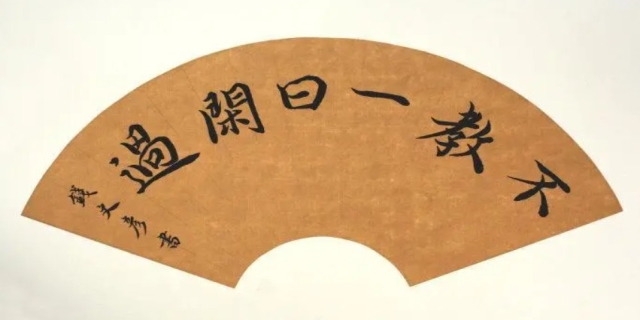 不教一日閑過
錢文彥書